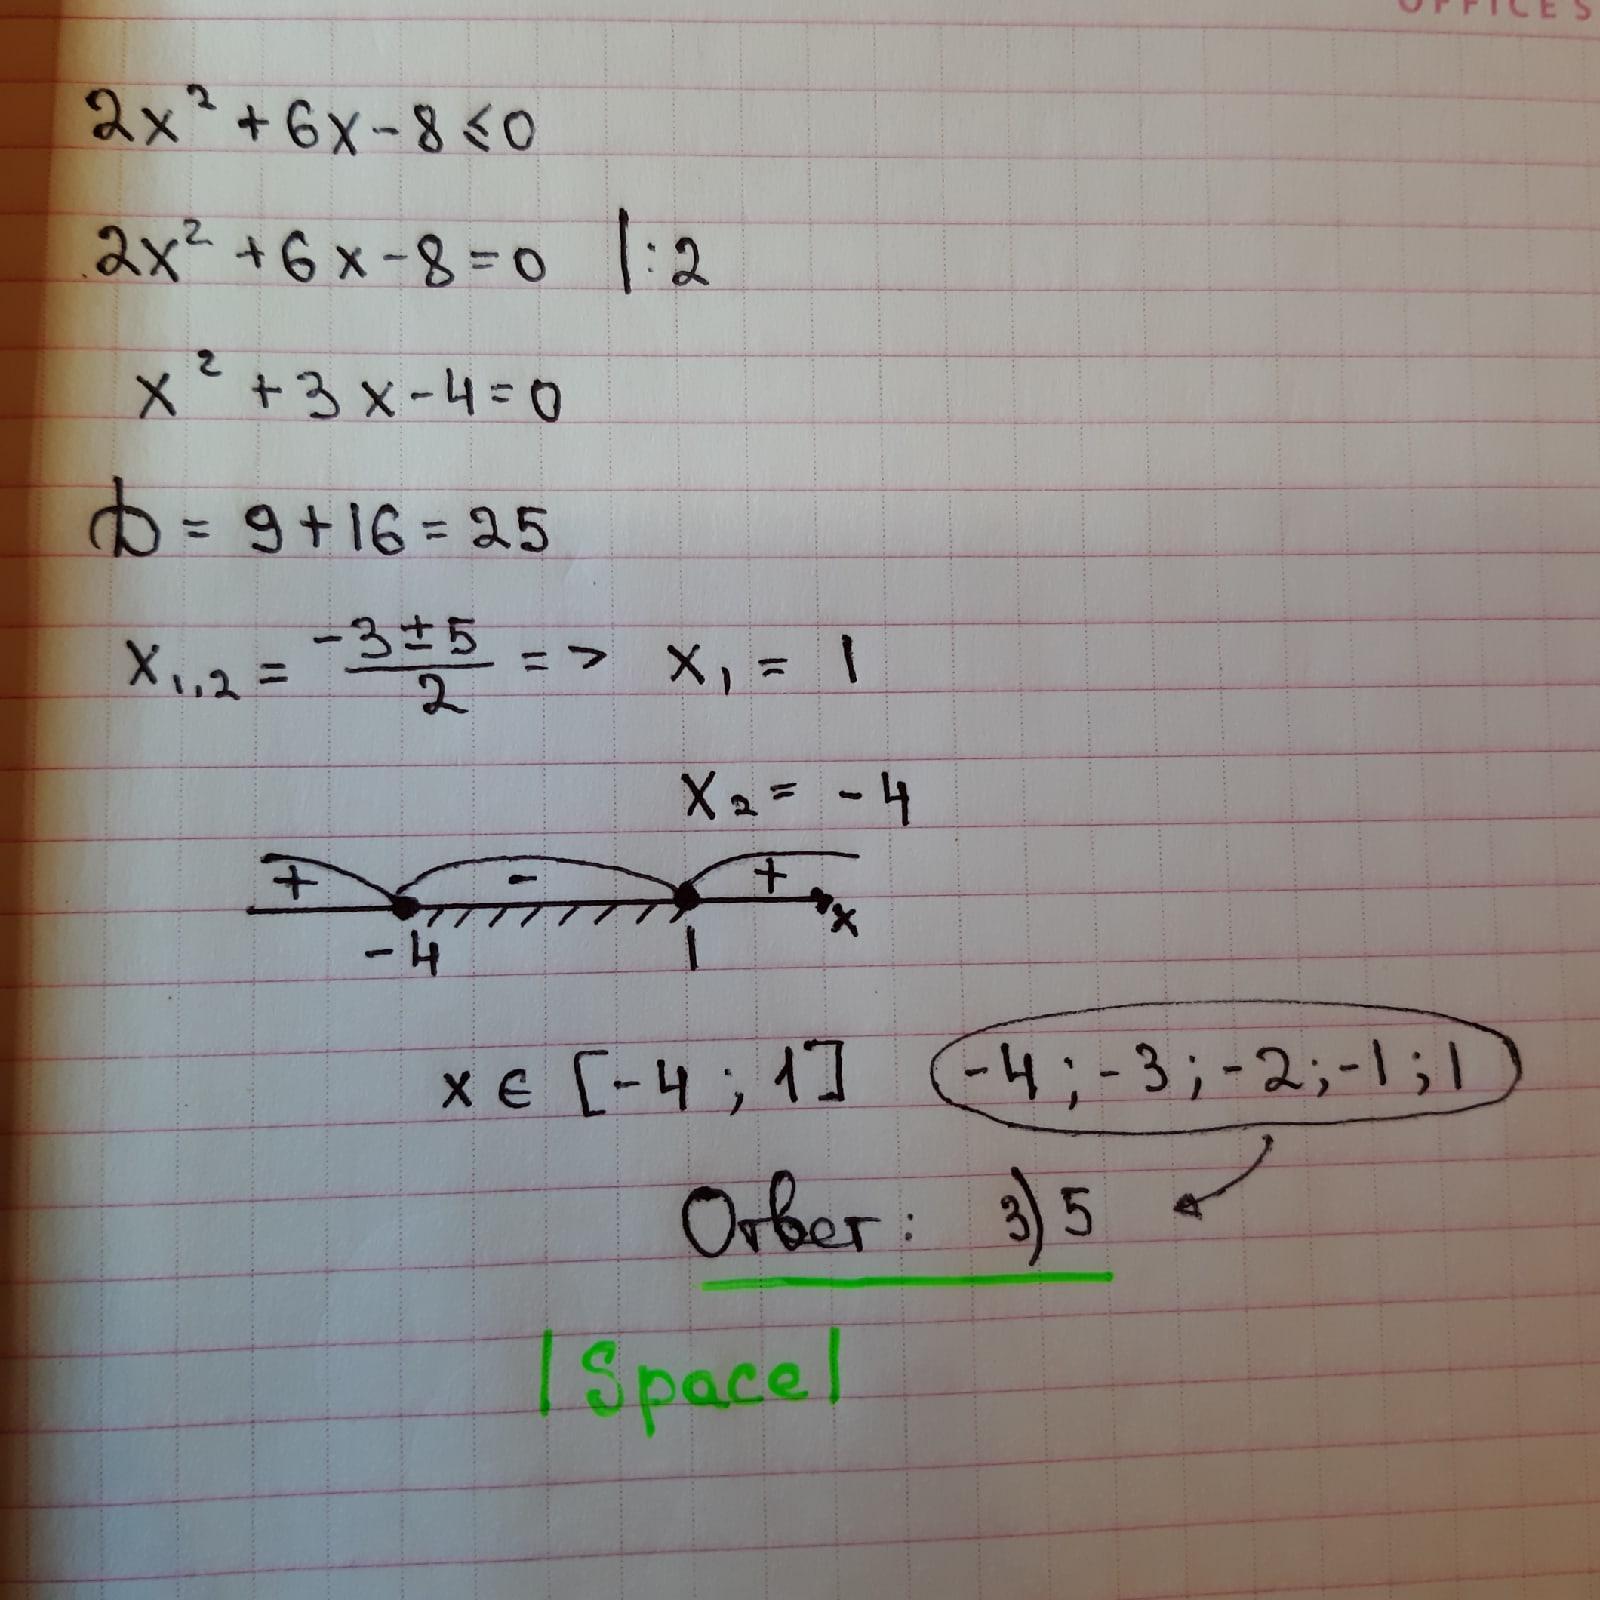 OFFICES
2x² + 6x - 8 ≤ 0
2x² + 6x - 8 = 0 |:2
x² + 3x - 4 = 0
D = 9 + 16 = 25
x₁,₂ = (-3 ± 5)/2 => x₁ = 1
x₂ = -4
+ - + x
-4 1
x ∈ [-4 ; 1] -4 ; -3 ; -2 ; -1 ; 1
Ответ: 3) 5
|Space|